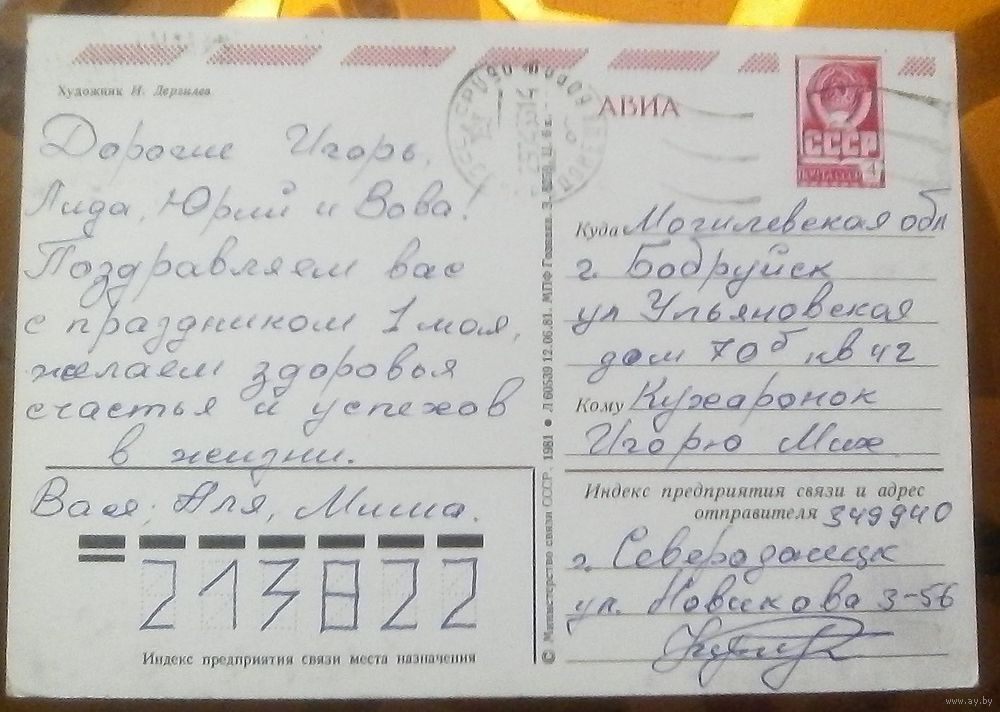 Художник И. Дергилев
АВИА
СССР
ПОЧТА СССР 4
Дорогие Игорь,
Лида, Юрий и Вова!
Поздравляем вас
с праздником 1 мая,
желаем здоровья
счастья и успехов
в жизни.
Вася, Аля, Миша.
213822
Индекс предприятия связи места назначения
© Министерство связи СССР. 1981 ● Л 60539 12.06.81. МПФ Гознака. З. Ц. 6 к.
Куда Могилевская обл
г. Бобруйск
ул Ульяновская
дом 70б кв 42
Кому Кухаронок
Игорю Мих
Индекс предприятия связи и адрес
отправителя 349940
г. Северодонецк
ул. Новикова 3-56
www.ay.by